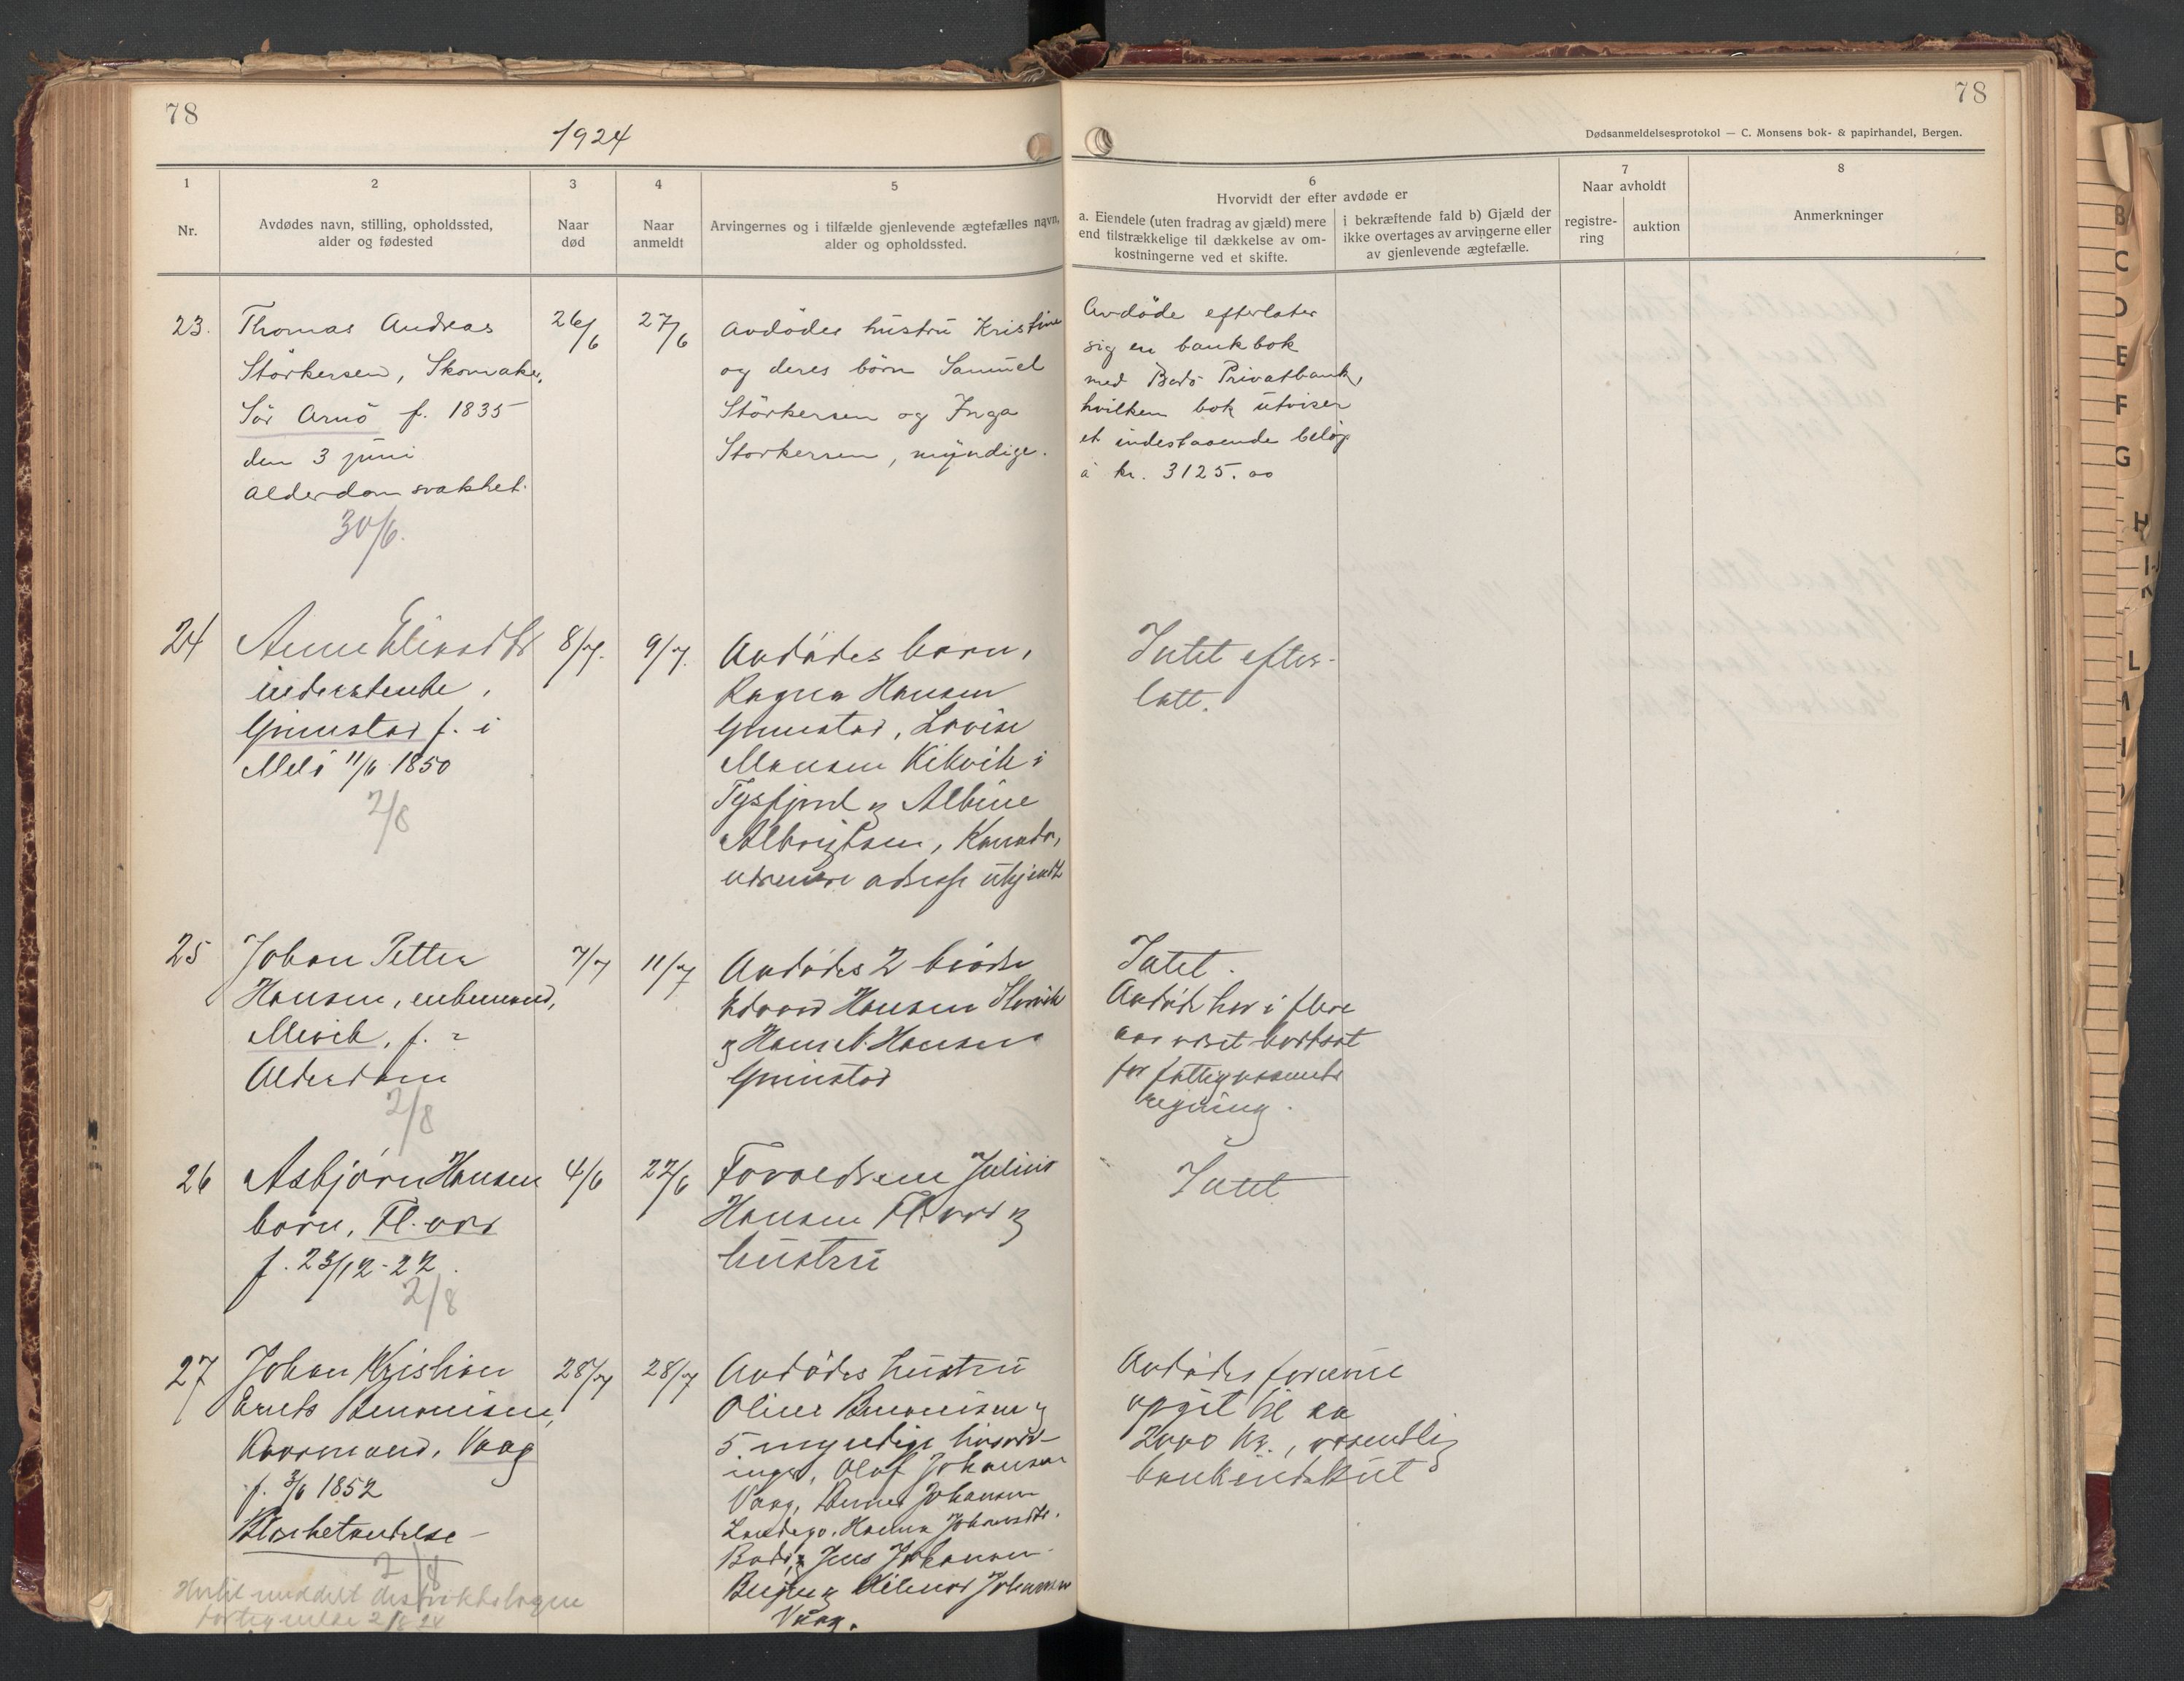 78
1924
78
Dødsanmeldelsesprotokol — C. Monsens bok- & papirhandel, Bergen.
1
Nr.
2
Avdødes navn, stilling, opholdssted,
alder og fødested
3
Naar
død
4
Naar
anmeldt
5
Arvingernes og i tilfælde gjenlevende ægtefælles navn,
alder og opholdssted.
6
Hvorvidt der efter avdøde er
a. Eiendele (uten fradrag av gjæld) mere
end tilstrækkelige til dækkelse av om-
kostningerne ved et skifte.
i bekræftende fald b) Gjæld der
ikke overtages av arvingerne eller
av gjenlevende ægtefælle.
7
Naar avholdt
registre-
ring
auktion
8
Anmerkninger
23.
Thomas Andreas
Störkersen, Skomaker,
Sör Arnö f. 1835
den 3 juni
Alderdomsvakhet.
30/6.
26/6
27/6
Avdödes hustru Kristine
og deres börn Samuel
Störkersen og Inga
Storkersen, myndige.
Avdöde efterlater
sig en bankbok
med Bodö Privatbank,
hvilken bok utviser
et indestaaende belöp
à kr. 3125.00
24
Anne
Grimstad f. i
11/6 1850
2/8
8/7.
9/7.
Avdødes barn,
Ragna Hansen
Grimstad, Lovise
Monsen Kikvik i
Tysfjord og Albine
Albrigtsen, Kanada,
adresse ukjendt
Intet efter-
latt.
25
Johan Petter
Hansen, enkemand,
f. -
Alderdom
2/8
7/7
11/7
Avdødes 2 brødre
Edvard Hansen
og Hans Hansen
Grimstad
Intet.
Avdøde har i flere
aar været bortsat
for fattigvæsenets
regning.
26
Asbjørn Hansen
barn, Fl.vær
f. 23/12-22.
2/8
4/6
22/6
Forældrene Julius
Hansen Fl.vær og
hustru
Intet
27
Johan Kristian
Benonisen,
Kaarmand, Vaag
f. 3/6 1852
2/8
28/7
28/7
Avdødes hustru
Oline Benonisen og
5 myndige livsarv-
inger, Olaf Johansen
Vaag, Johansen
Landego, Hanna Johansdtr.
Bodø, Jens Johansen
og Hilmar Johansen
Vaag.
Avdødes formue
opgit til ca
2000 kr., væsentlig
bankindskut
Hertil meddelt distriktslægen
2/8 24